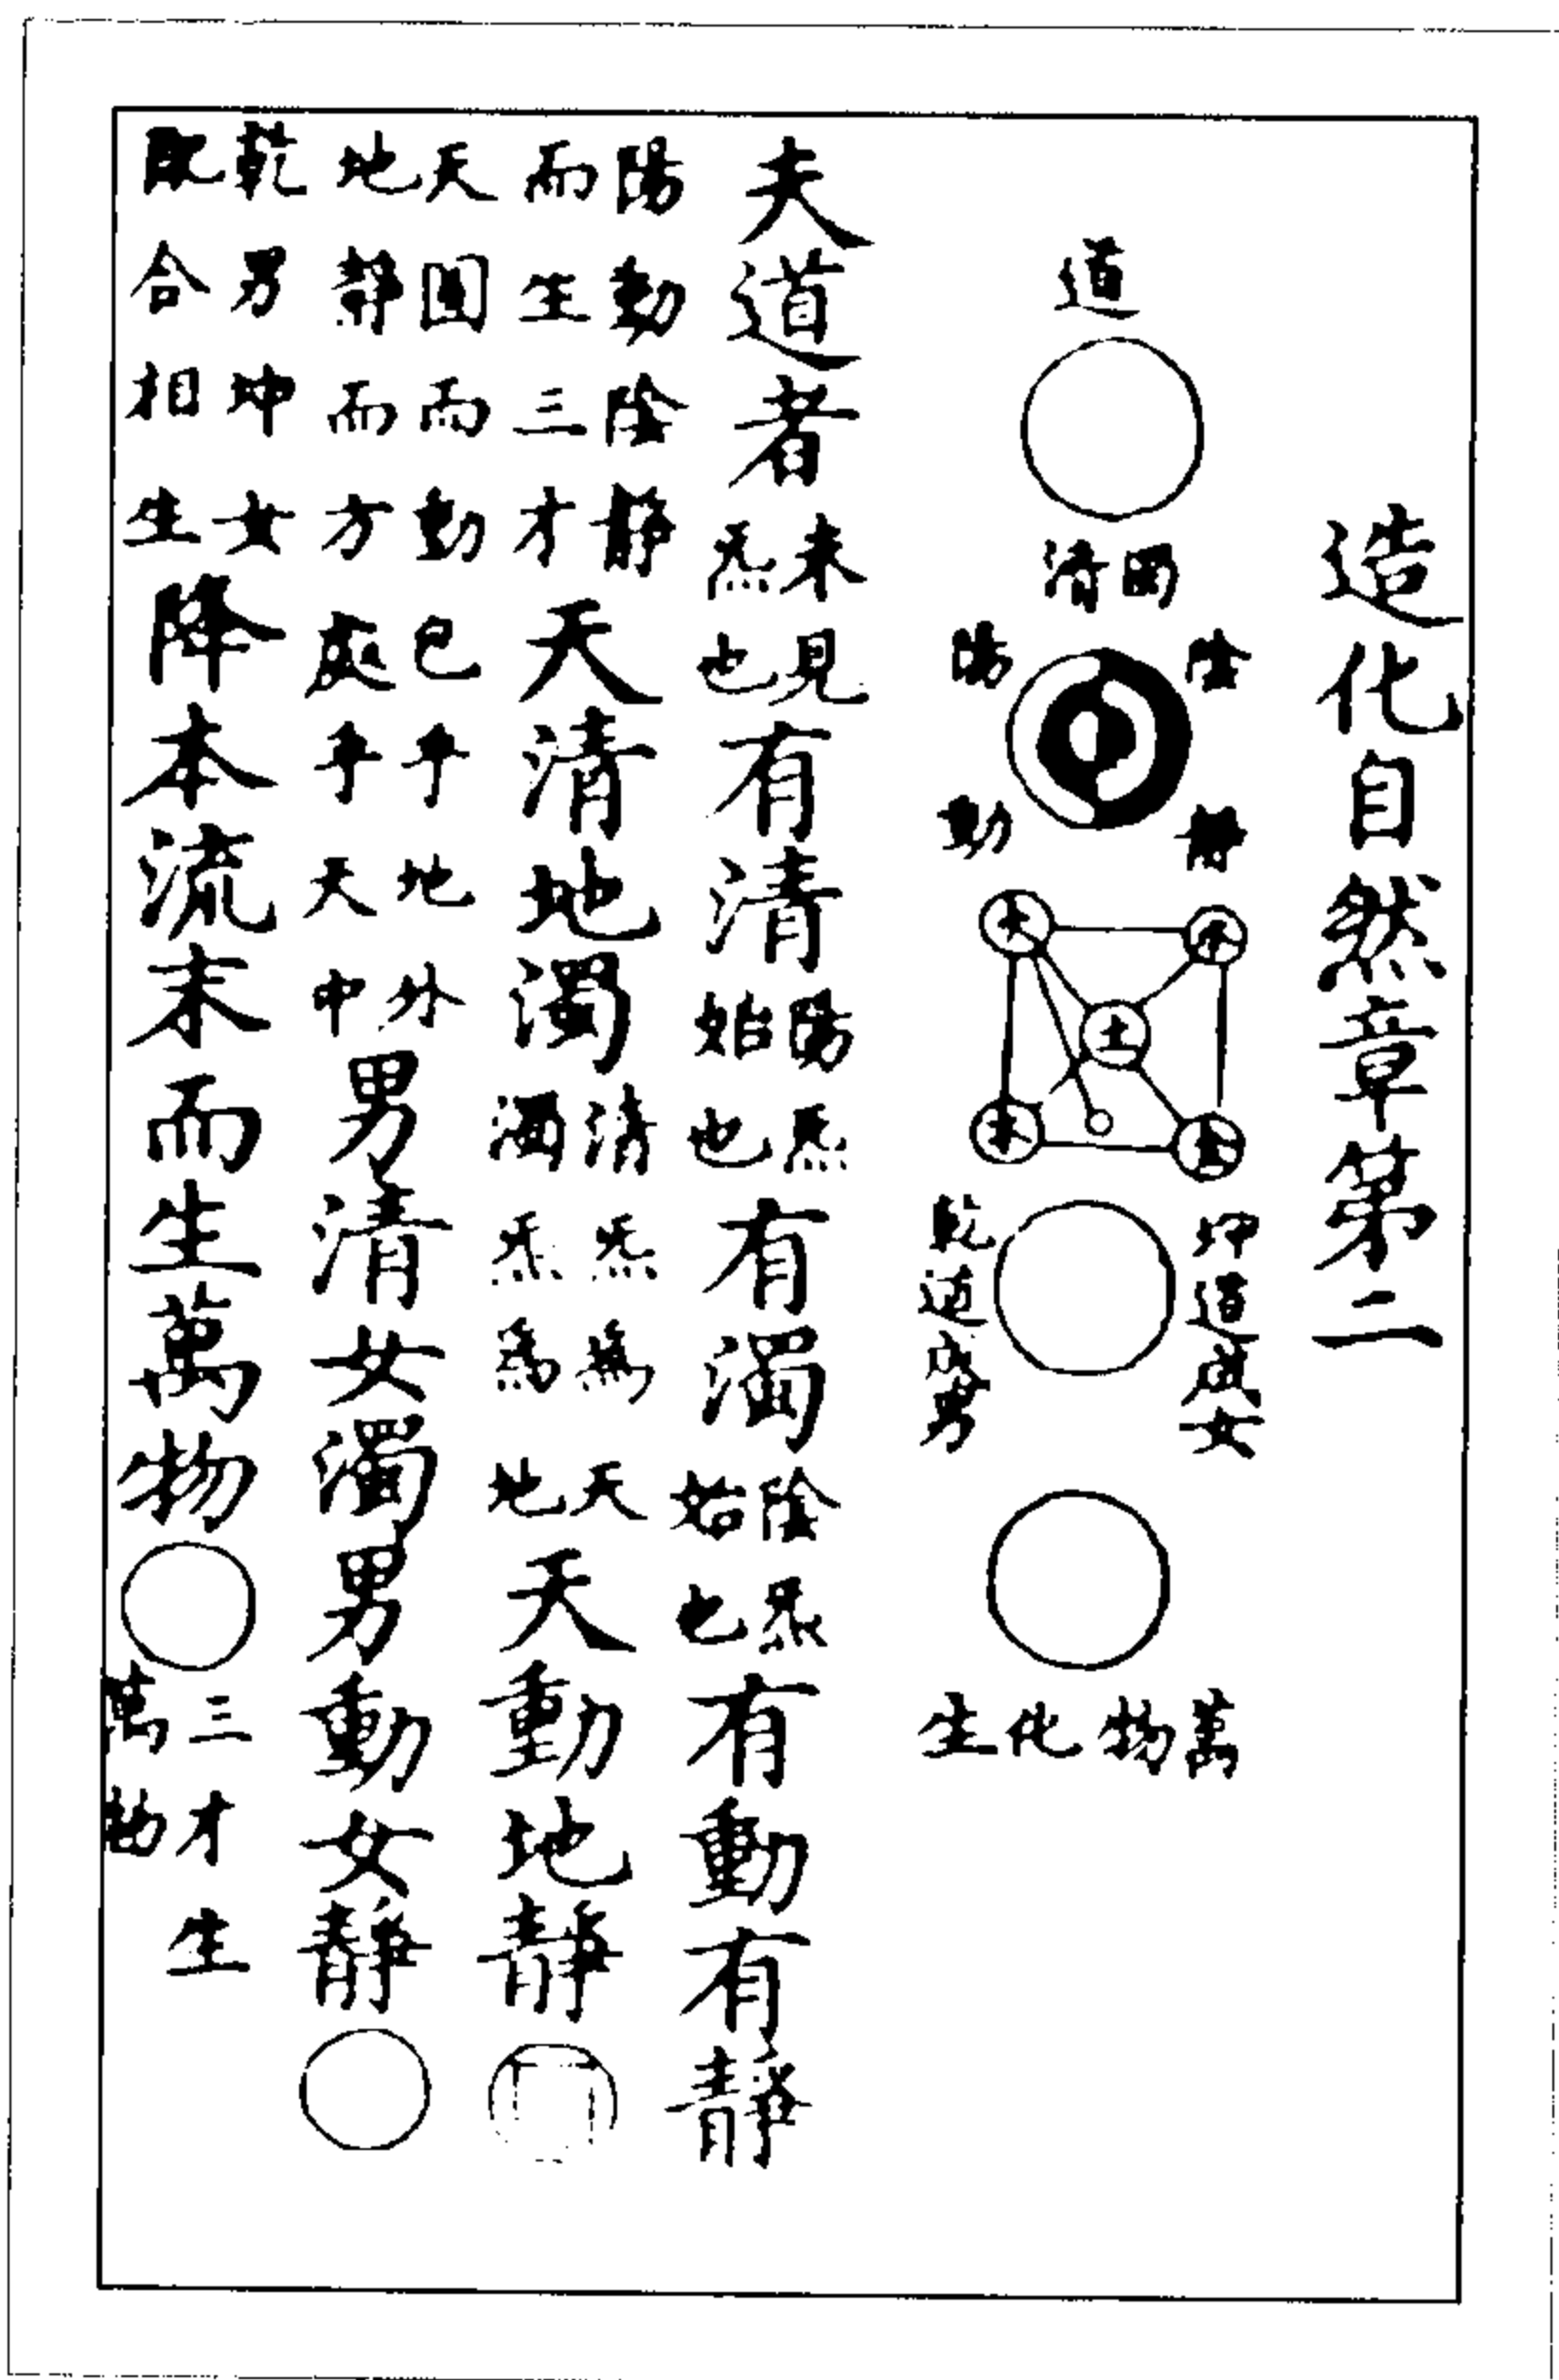 造化自然章第二
道
清
陰
陽
靜
動
木
土
坤道成女
乾道成男
萬物化生
夫道者
未見
炁也
有清
陽炁
始也
有濁
陰炁
始也
有動有靜
陽動陰靜
而生三才
天清地濁
清炁為天
濁炁為地
天動地靜
天圓而動包乎地外
地靜而方處乎天中
男清女濁男動女靜
乾男坤女
既合相生
降本流末而生萬物
三才生
萬物